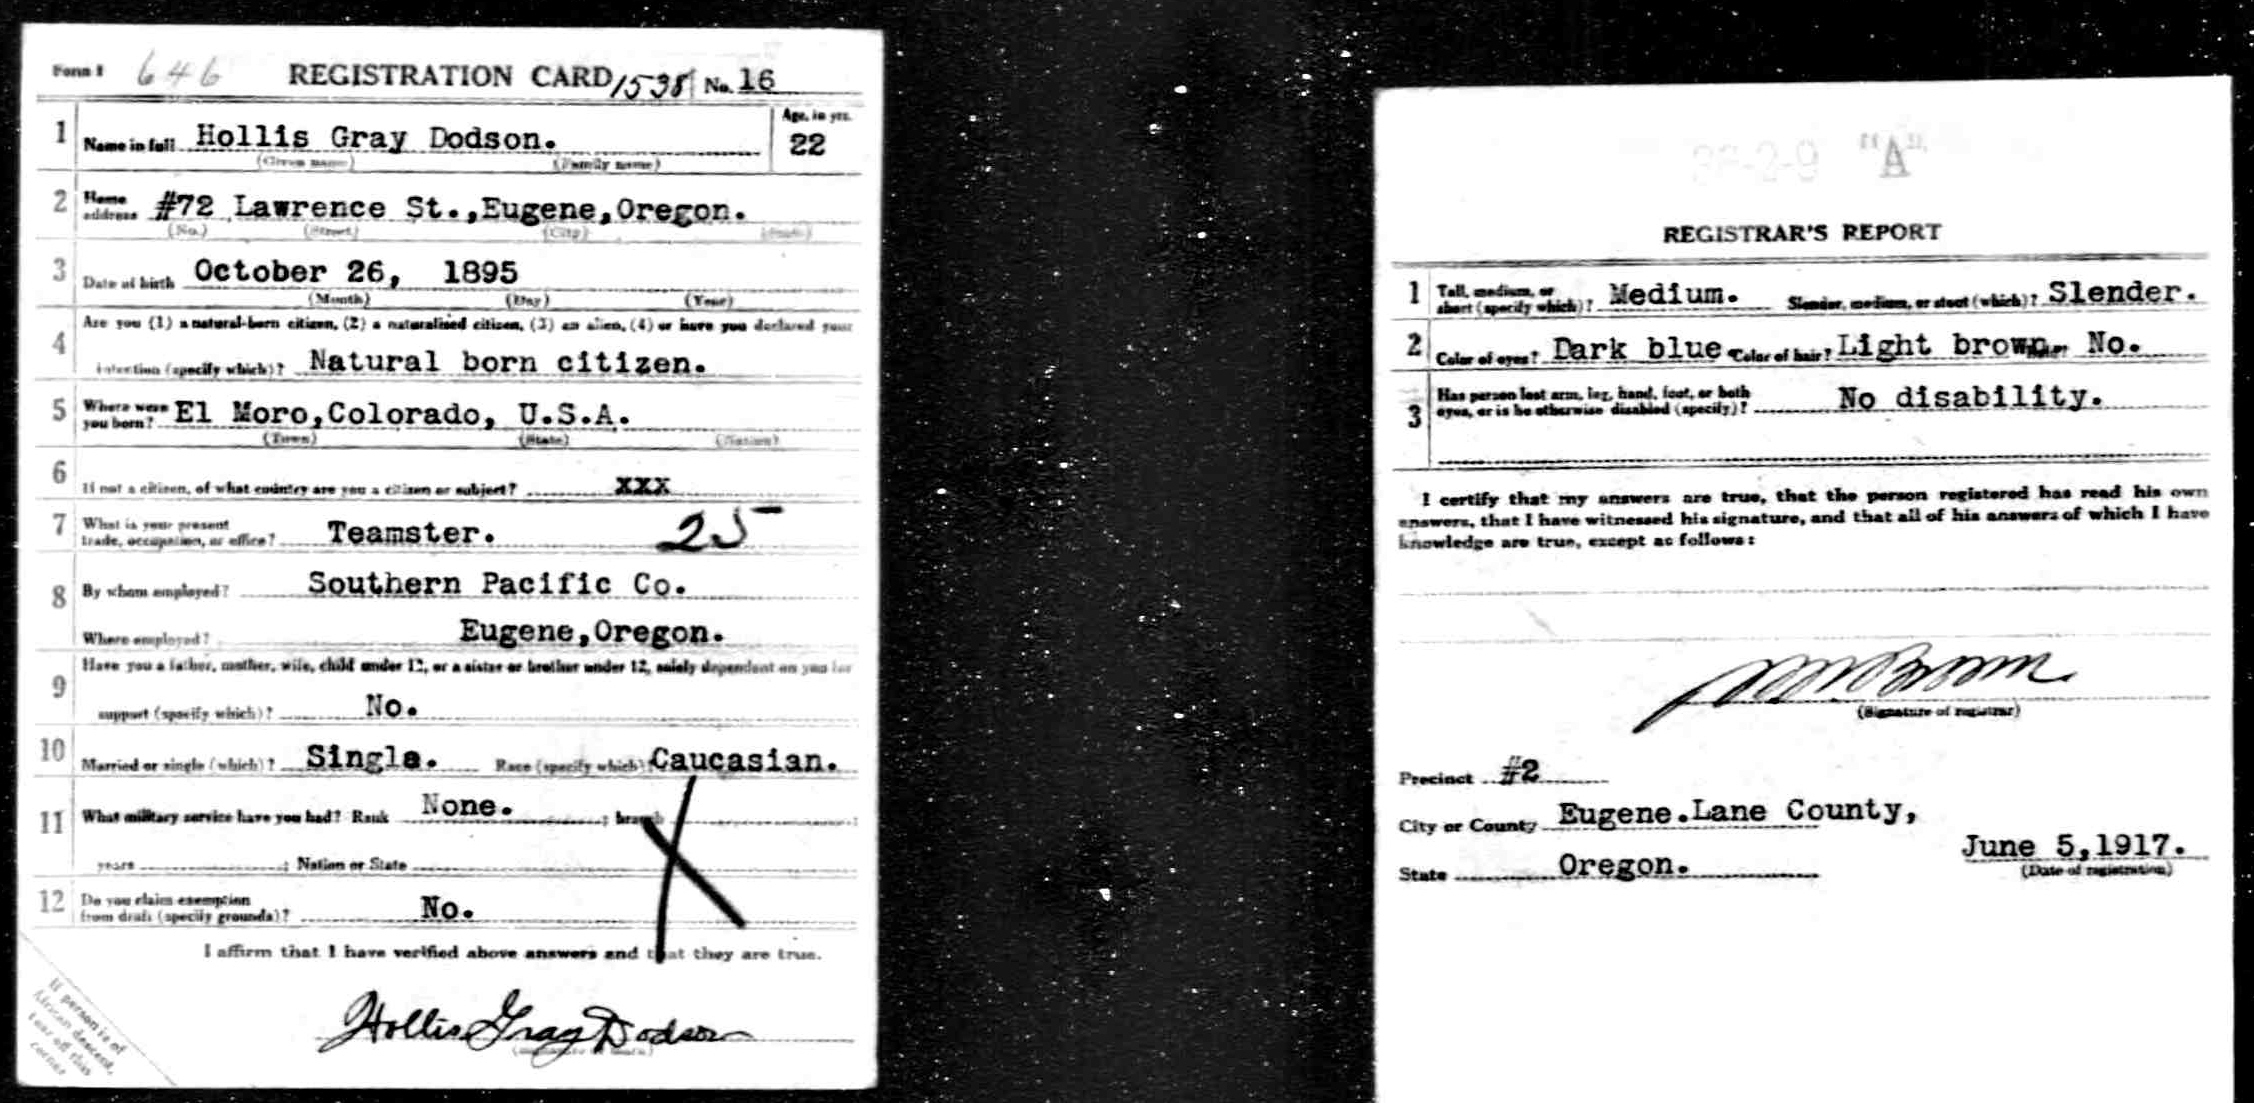 Form 1 646 REGISTRATION CARD 1538 No. 16
1 Name in full Hollis Gray Dodson. Age, in yrs. 22
(Given name) (Family name)
2 Home address #72 Lawrence St.,Eugene,Oregon.
(No.) (Street) (City) (State)
3 Date of birth October 26, 1895
(Month) (Day) (Year)
4 Are you (1) a natural-born citizen, (2) a naturalized citizen, (3) an alien, (4) or have you declared your
intention (specify which)? Natural born citizen.
5 Where were you born? El Moro,Colorado, U.S.A.
(Town) (State) (Nation)
6 If not a citizen, of what country are you a citizen or subject? XXX
7 What is your present
trade, occupation, or office? Teamster. 25
8 By whom employed? Southern Pacific Co.
Where employed? Eugene,Oregon.
9 Have you a father, mother, wife, child under 12, or a sister or brother under 12, solely dependent on you for
support (specify which)? No.
10 Married or single (which)? Single. Race (specify which)? Caucasian.
11 What military service have you had? Rank None. ; branch ;
years ; Nation or State
12 Do you claim exemption
from draft (specify grounds)? No.
I affirm that I have verified above answers and that they are true.
Hollis Gray Dodson
If person is of
African descent,
tear off this
corner
"A"
REGISTRAR'S REPORT
1 Tall, medium, or
short (specify which)? Medium. Slender, medium, or stout (which)? Slender.
2 Color of eyes? Dark blue Color of hair? Light brown No.
3 Has person lost arm, leg, hand, foot, or both
eyes, or is he otherwise disabled (specify)? No disability.
I certify that my answers are true, that the person registered has read his own
answers, that I have witnessed his signature, and that all of his answers of which I have
knowledge are true, except as follows:
(Signature of registrar)
Precinct #2
City or County Eugene.Lane County,
State Oregon.
June 5,1917.
(Date of registration)